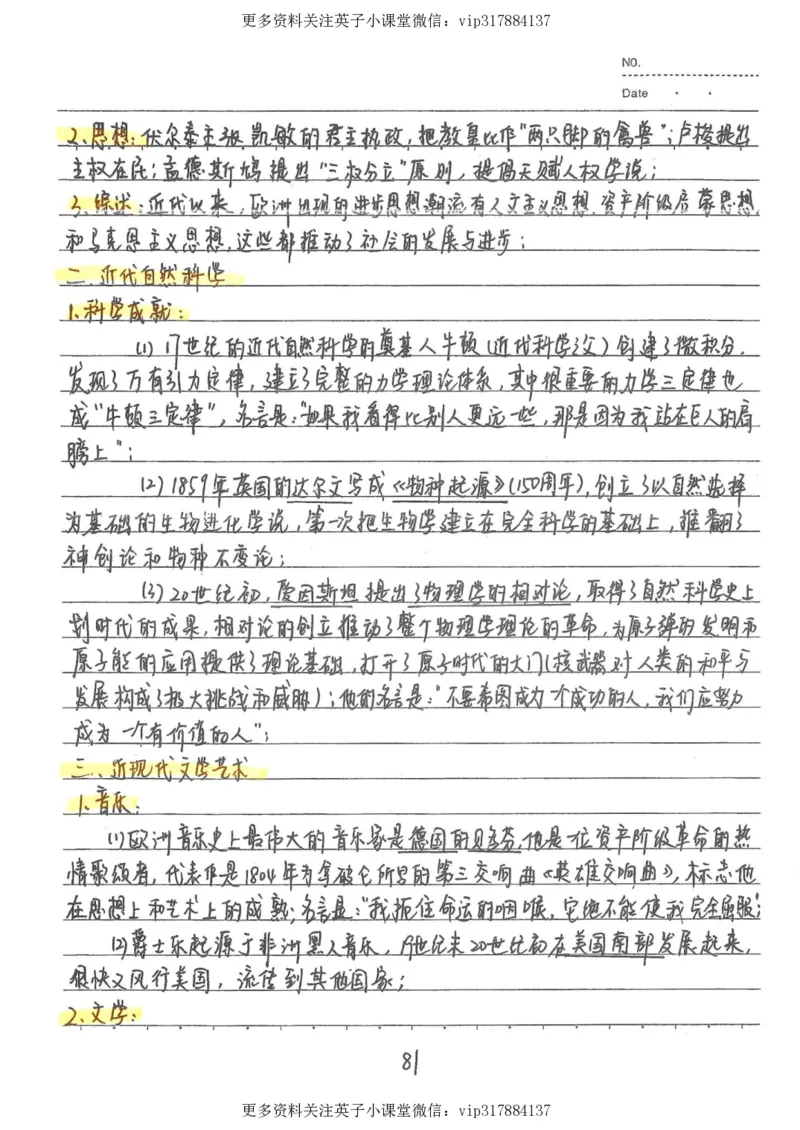 更多资料关注英子小课堂微信：vip317884137
NO.
Date
2、思想：伏尔泰主张凯敏的君主执政，把教皇比作“两只脚的禽兽”；卢梭提出
主权在民；孟德斯鸠提出“三权分立”原则，提倡天赋人权学说；
3、综述：近代以来，欧洲出现的进步思想潮流有人文主义思想、资产阶级启蒙思想，
和马克思主义思想，这些都推动了社会的发展与进步；
二、近代自然科学
1、科学成就：
(1) 17世纪的近代自然科学的奠基人牛顿（近代科学之父）创建了微积分，
发现了万有引力定律，建立了完整的力学理论体系，其中很重要的力学三定律也
成“牛顿三定律”，名言是：“如果我看得比别人更远一些，那是因为我站在巨人的肩
膀上”；
(2) 1859年英国的达尔文写成《物种起源》(150周年)，创立了以自然选择
为基础的生物进化学说，第一次把生物学建立在完全科学的基础上，推翻了
神创论和物种不变论；
(3) 20世纪初，爱因斯坦提出了物理学的相对论，取得了自然科学史上
划时代的成果，相对论的创立推动了整个物理学理论的革命，为原子弹的发明和
原子能的应用提供了理论基础，打开了原子时代的大门（核武器对人类的和平与
发展构成了极大挑战和威胁）；他的名言是：“不要希图成为一个成功的人，我们应努力
成为一个有价值的人”；
三、近现代文学艺术
1、音乐：
(1)欧洲音乐史上最伟大的音乐家是德国的贝多芬，他是一位资产阶级革命的热
情歌颂者，代表作是1804年为拿破仑所写的第三交响曲《英雄交响曲》，标志他
在思想上和艺术上的成熟；名言是：“我扼住命运的咽喉，它绝不能使我完全屈服”；
(2)爵士乐起源于非洲黑人音乐，19世纪末20世纪初在美国南部发展起来，
很快又风行美国，流传到其他国家；
2、文学：
81
更多资料关注英子小课堂微信：vip317884137